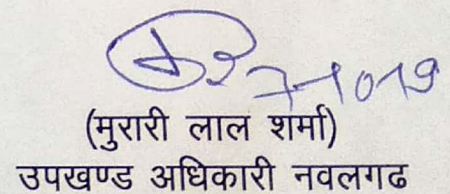 (मुरारी लाल शर्मा)
उपखण्ड अधिकारी नवलगढ